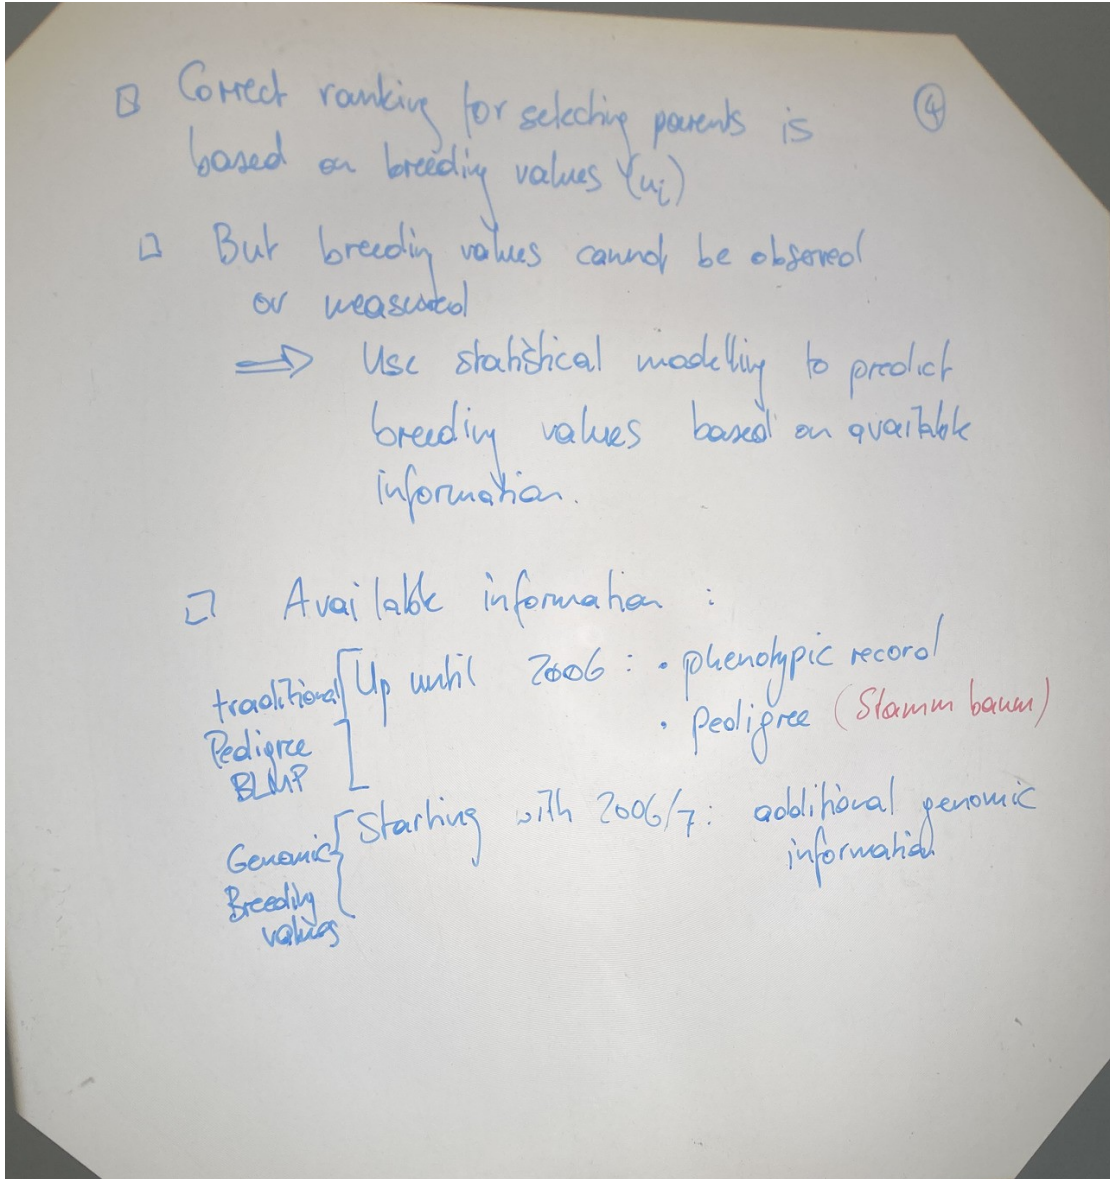 Correct ranking for selecting parents is
④
based on breeding values (ui)
But breeding values cannot be observed
or measured
⇒ Use statistical modelling to predict
breeding values based on available
information.
Available information :
Up until 2006 : • phenotypic record
• pedigree (Stammbaum)
traditional
Pedigree
BLUP
Starting with 2006/7: additional genomic
information
Genomic
Breeding
values